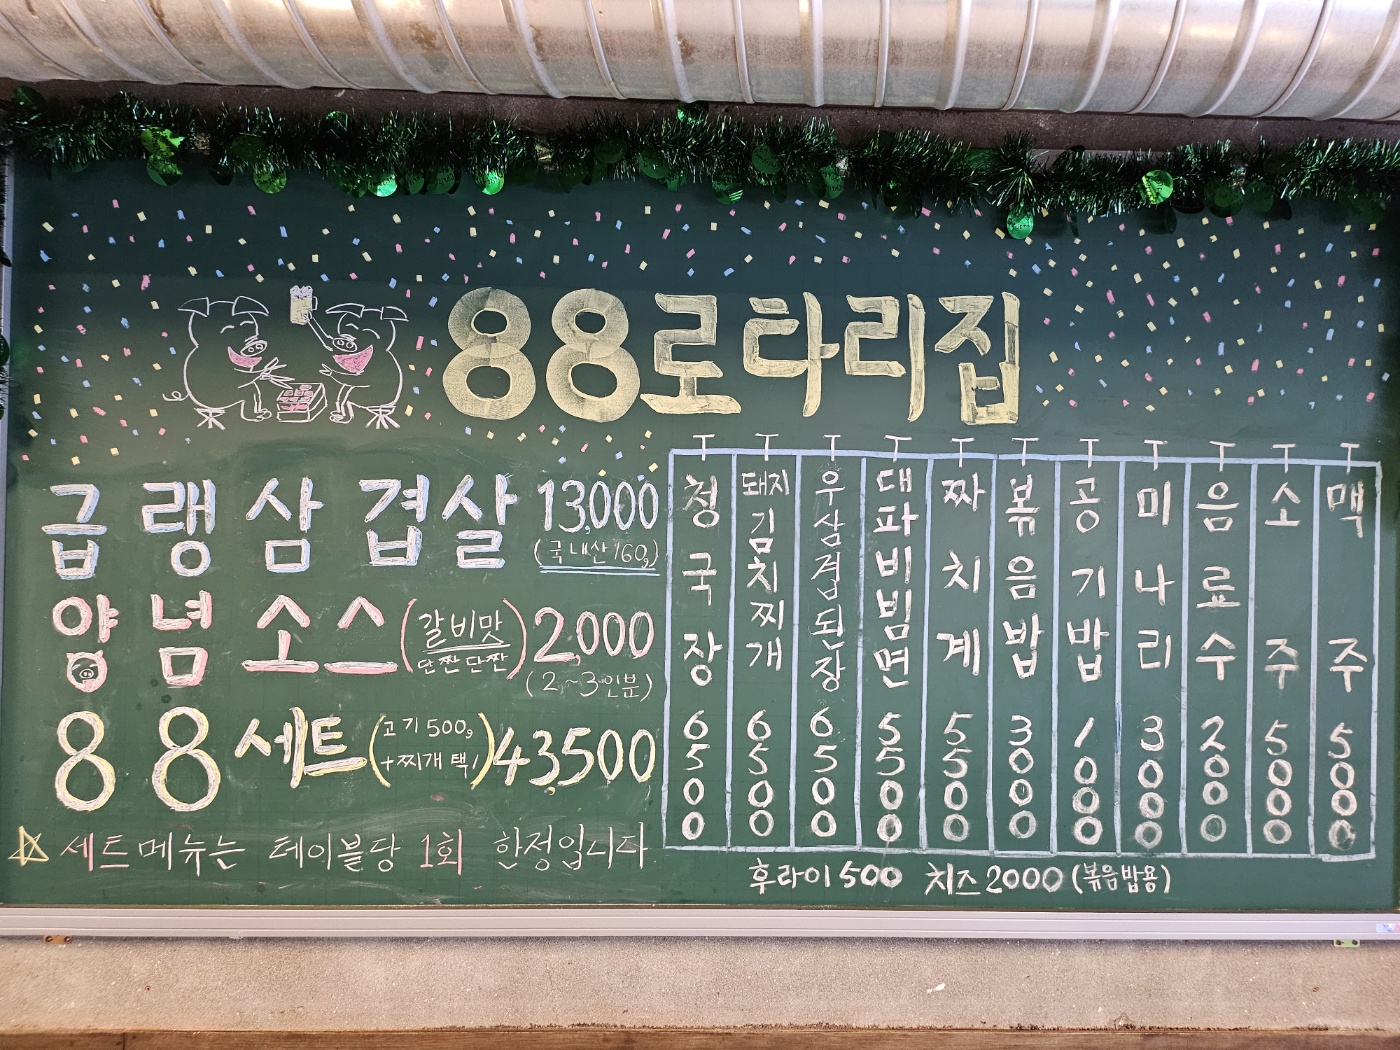 88로타리집
급랭삼겹살 13,000
(국내산 160g)
양념소스 (갈비맛 단짠단짠) 2,000
(2~3인분)
88세트 (고기 500g +찌개 택1) 43,500
☆ 세트메뉴는 테이블당 1회 한정입니다
청국장 6500
돼지김치찌개 6500
우삼겹된장 6500
대파비빔면 5500
짜치계 5500
볶음밥 3000
공기밥 1000
미나리 3000
음료수 2000
소주 5000
맥주 5000
후라이 500 치즈 2000 (볶음밥용)